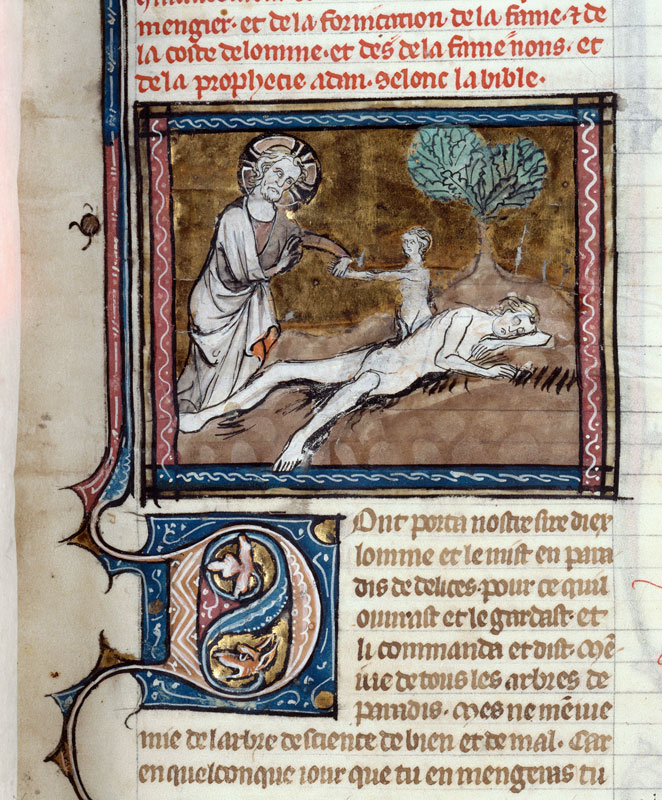 mengier· et de la formcation de la fame· ⁊ de
la coste delomme· et des de la fame nons· et
de la prophecie adam· Selonc la bible·
Dont porta nostre sire diex
lomme et le mist en para
dis de delices· pour ce quil
ouurast et le gardast· et
li commanda et dist· Mē
iue de tous les arbres de
paradis· Mes ne meniue
mie de larbre de science de bien et de mal· Car
en quelconque iour que tu en mengeras tu